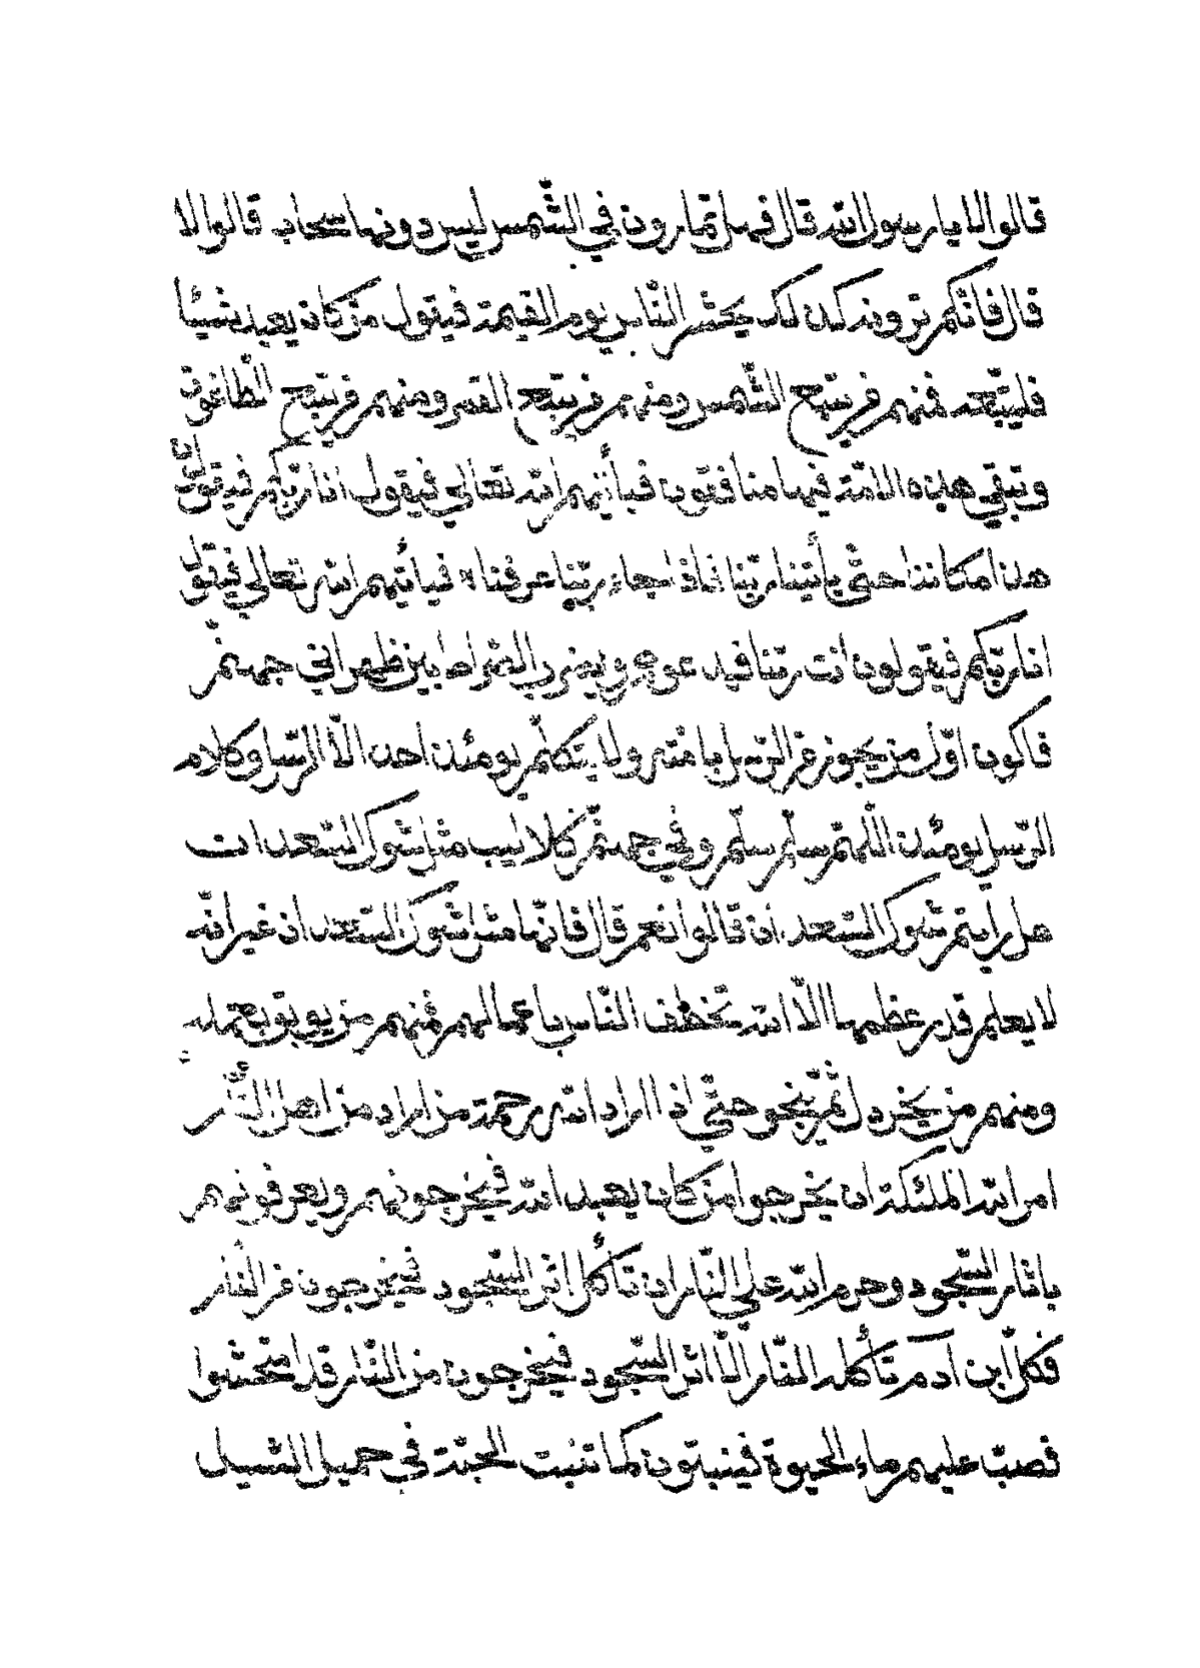 قالوا لا يا رسول الله قال فهل تمارون في الشمس ليس دونها سحاب قالوا لا
قال فانكم ترونه كذلك يحشر الناس يوم القيمة فيقول من كان يعبد شيئا
فليتبعه فمنهم من يتبع الشمس ومنهم من يتبع القمر ومنهم من يتبع الطاغوت
وتبقي هذه الامة فيها منافقون فيأتيهم الله تعالي فيقول انا ربكم فيقولون
هذا مكاننا حتي يأتينا ربنا فاذا جاء ربنا عرفناه فيأتيهم الله تعالي فيقول
انا ربكم فيقولون انت ربنا فيدعوهم ويضرب الصراط بين ظهراني جهنم
فاكون اول من يجوز من الرسل بامته ولا يتكلم يومئذ احد الا الرسل وكلام
الرسل يومئذ اللهم سلم سلم وفي جهنم كلاليب مثل شوك السعدات
هل رأيتم شوك السعدان قالوا نعم قال فانها مثل شوك السعدان غير انه
لا يعلم قدر عظمها الا الله تخطف الناس باعمالهم فمنهم من يوبق بعمله
ومنهم من يخردل ثم ينجو حتي اذا اراد الله رحمة من اراد من اهل النار
امر الله الملئكة ان يخرجوا من كان يعبد الله فيخرجونهم ويعرفونهم
باثار السجود وحرم الله علي النار ان تأكل اثر السجود فيخرجون من النار
فكل ابن آدم تأكله النار الا اثر السجود فيخرجون من النار قد امتحشوا
فصب عليهم ماء الحيوة فينبتون كما تنبت الحبة في حميل السيل